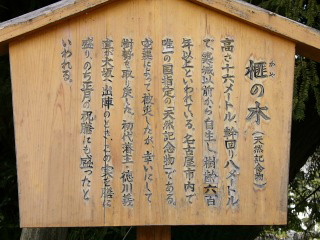 かや
榧の木（天然記念物）
高さ十六メートル、幹回り八メートル
で、築城以前から自生し、樹齢六百
年以上といわれている。名古屋市内で
唯一の国指定の「天然記念物」である。
空襲によって被災したが、幸いにして
樹勢を取り戻した。初代藩主・徳川義
直が大坂へ出陣のとき、この実を膳に
盛り、のち正月の祝膳にも盛ったと
いわれる。